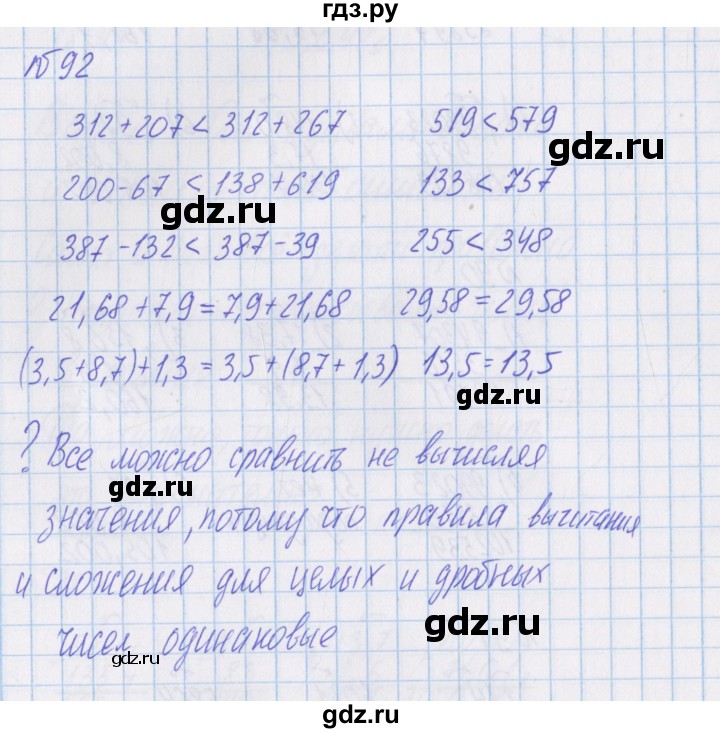 гдз.ру
№92
312+207<312+267 519<579
gdz.ru
200-67<138+619 133<757
gdz.ru
387-132<387-39 255<348
21,68+7,9=7,9+21,68 29,58=29,58
(3,5+8,7)+1,3=3,5+(8,7+1,3) 13,5=13,5
gdz.ru
? Все можно сравнить не вычисляя
gdz.ru
значения, потому что правила вычитания
и сложения для целых и дробных
gdz.ru
чисел одинаковые
gdz.ru
gdz.ru